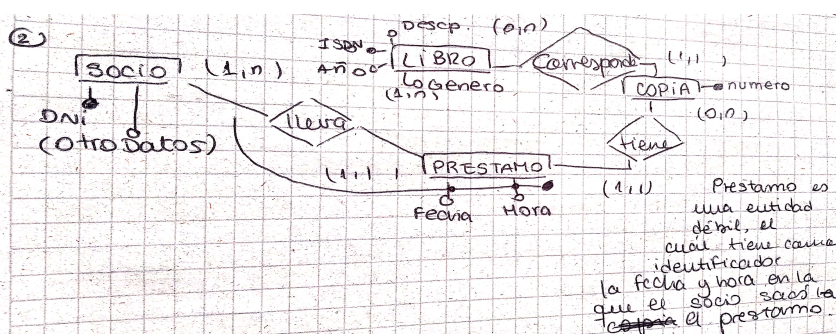 2
SOCIO (1,n)
DNi
(Otro Datos)
Descp. (0,n)
ISBN
Año
LiBRO
Genero
(1,n)
Corresponde (1,1)
COPiA numero
(0,n)
lleva
tiene
(1,1)
PRESTAMO
(1,1)
Fecha Hora
Prestamo es
una entidad
débil, el
cuál tiene como
identificador
la fecha y hora en la
que el socio sacó la
copia el prestamo.